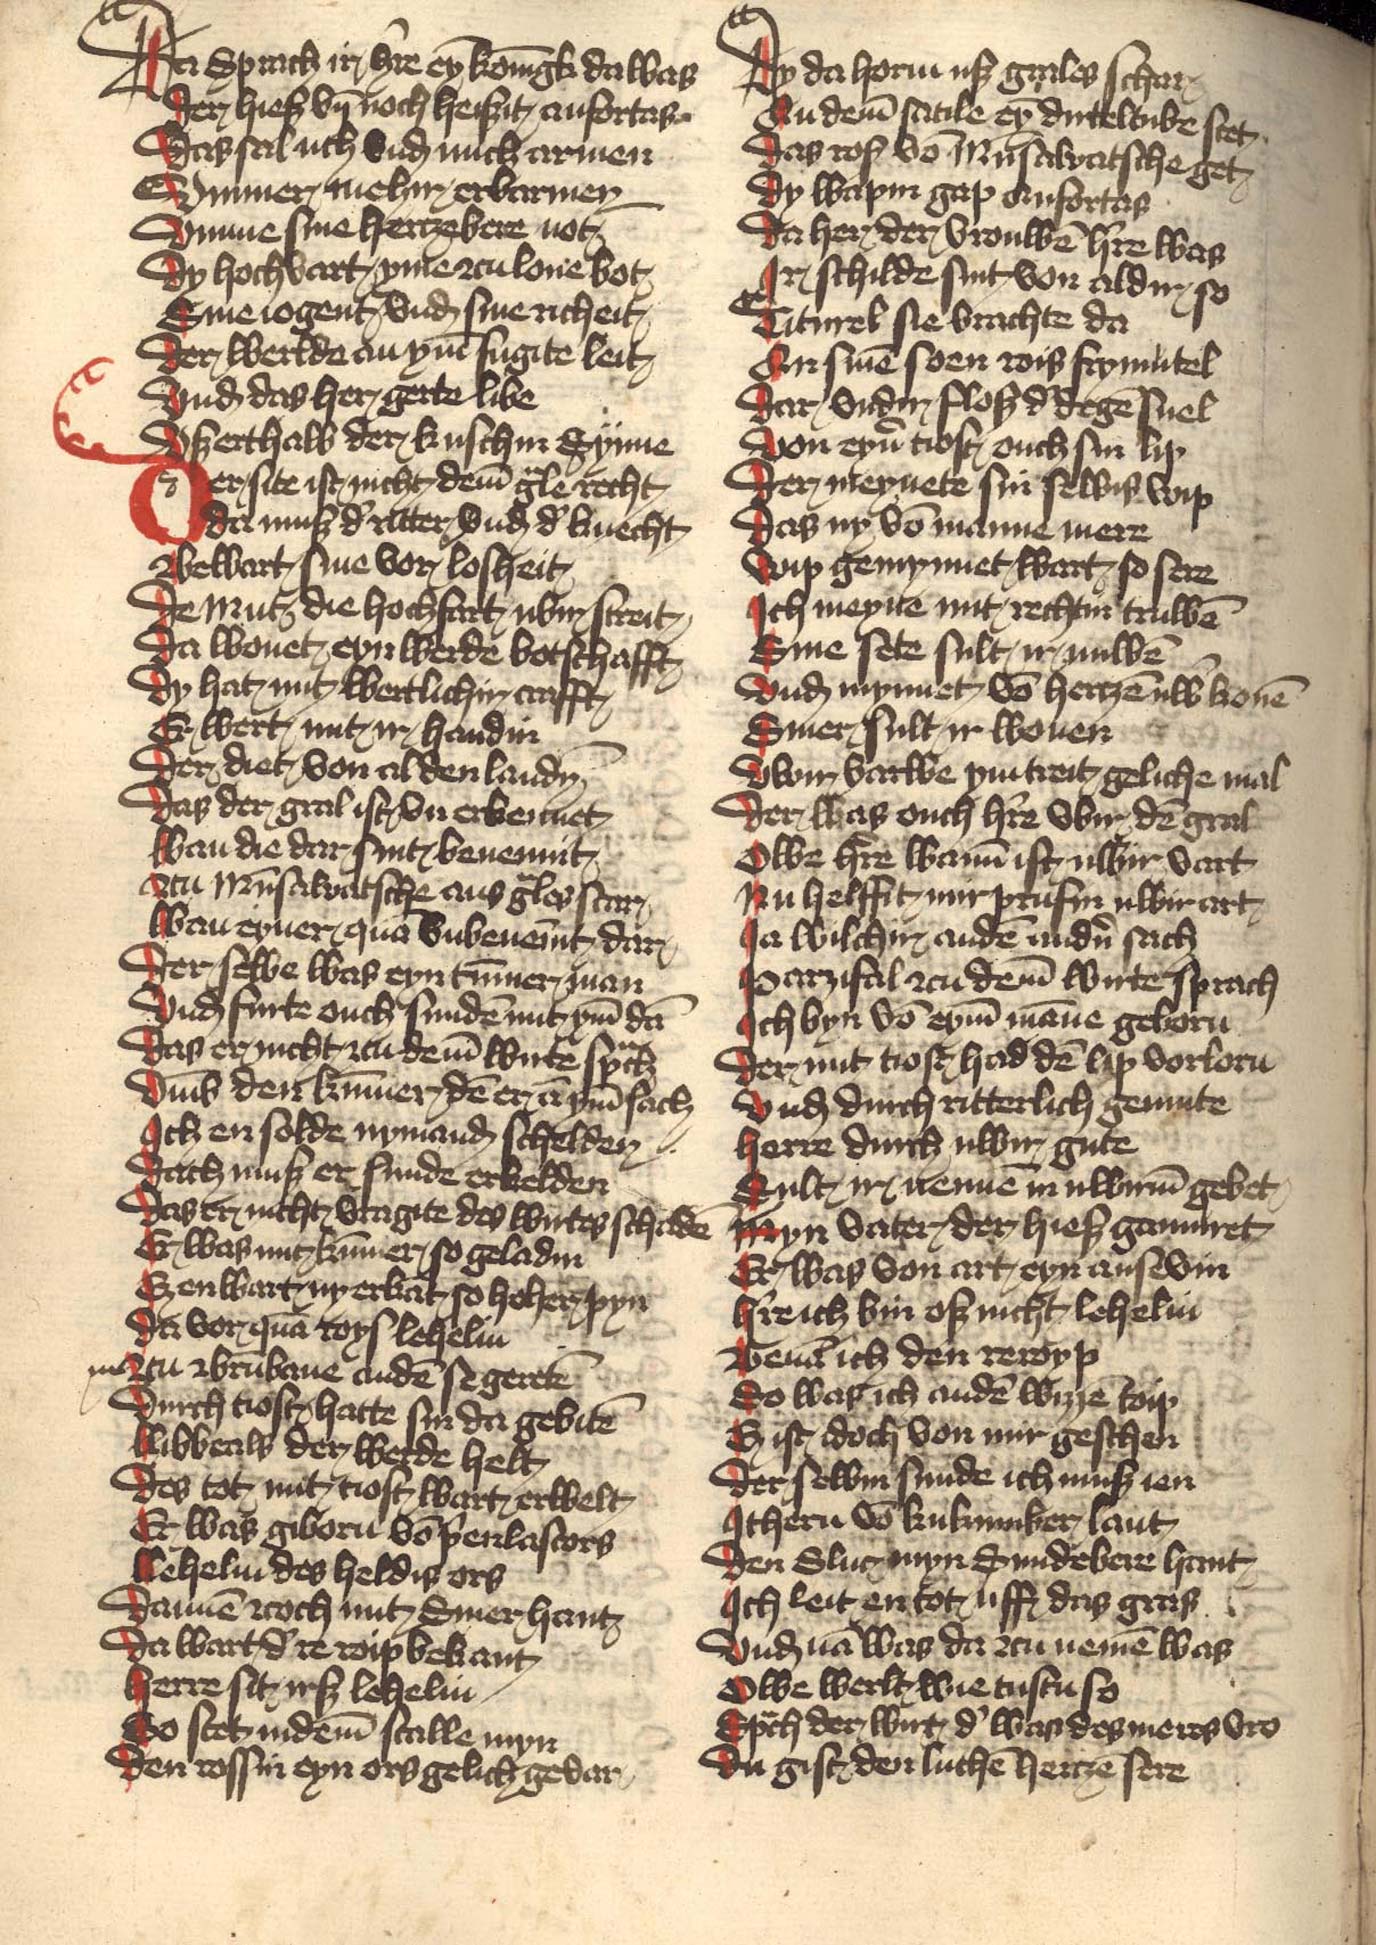 Da Sprach ir h're ey konigk da was
Der hiesz vn noch heiszit anfortas
Das sal uch vnd mich armen
Vmmer mehir erbarmen
Vmme sine hertzebere not
Dy hochvart yme zcu lone bot
Sine iogent vnd sine richeit
Der werlde an ym fugite leit
Vnd das her gerte libe
Vszerthalb der kuschin Synne
Der site ist nicht dem grale recht
da musz d' ritter vnd d' knecht
Bewart sine vor losheit
De Mut die hochfart ubir streit
Da wonet eyn werde botschafft
Dy hat mit wertlichir crafft
Er wert mit ir handin
Der diet von al den landin
Das der gral ist vn erkennet
Wan die dar sint benennit
Zcu Munsalvatsche ans grales scar
Wan eyner qua vnbenemt dar
Der selbe was eyn tummer man
Vnd furte ouch sunde mit ym dan
Das er nicht zcu dem wirte sprach
Vmb den kummer den er an ym sach
Ich en solde nymand schelden
Dach musz er sunde erkelden
Das er nicht vragite des wirtes schaden
Er was mit kumer so geladin
Ez enwart ny erkat so hoher pyn
Da vor qua roys lehelin
Zcu Brunbane an den se gereten
Durch tiost hatte sin da gebiten
Libbeals der werde helt
Des tot mit tiost wart erwelt
Er was giborn vo prenlascors
Lehelin des heldis ors
Danne zcoch mit Siner hant
Da wart d' re roip bekant
Herre sit irsz lehelin
So stet in dem stalle myn
Den rossin eyn ors gelich gevar
Dy da horin usz grales schar
An dem satile ey durteltube stet
Das rosz vo Munsalvatsche get
Dy wapin gap Anfortas
Da her der vrouwe h're was
Ir schilde sint von aldir so
Titurel sie brachte da
An sine soen rois frymutel
Dar vndir flosz d' degen snel
Von eyner tiost ouch sin lip
Der meynete sin selbis wip
Das ny vo manne mere
Wip gemynnet wart so sere
Ich meyne mit rechtir truwe
Sine sete sult ir nuwe
Vnd mynnet vo hertze uw' kone
Siner sult ir wonen
Vwir varwe ym treit geliche mal
Der was ouch h're vbir de gral
Owe h're wann ist uwir vart
Nu helffit mir prufin uwir art
Ja wilchir an den andern sach
Parzifal zcu dem wirte sprach
Ich byn vo eym manne geborn
Der mit tiost had de lip vorlorn
Vnd durch ritterlich gemute
Herre durch uwir gute
Sult ir nenne in uwirm gebet
Myn vater der hiesz gamuret
Er was von art eyn ansevin
H're ich bin osz nicht lehelin
Benam ich den reroyp
So was ich an den wizze toip
Ez ist idoch von mir geschen
Der selbin sunde ich musz ien
Ithern vo kukumber lant
Den Sluc myn Sundebere hant
Ich leit en tot uff das gras
Vnd na was da zcu neme was
Owe werlt wie tustu so
Sprach der wirt d' was des meres vro
Du gist den luthe hertze sere